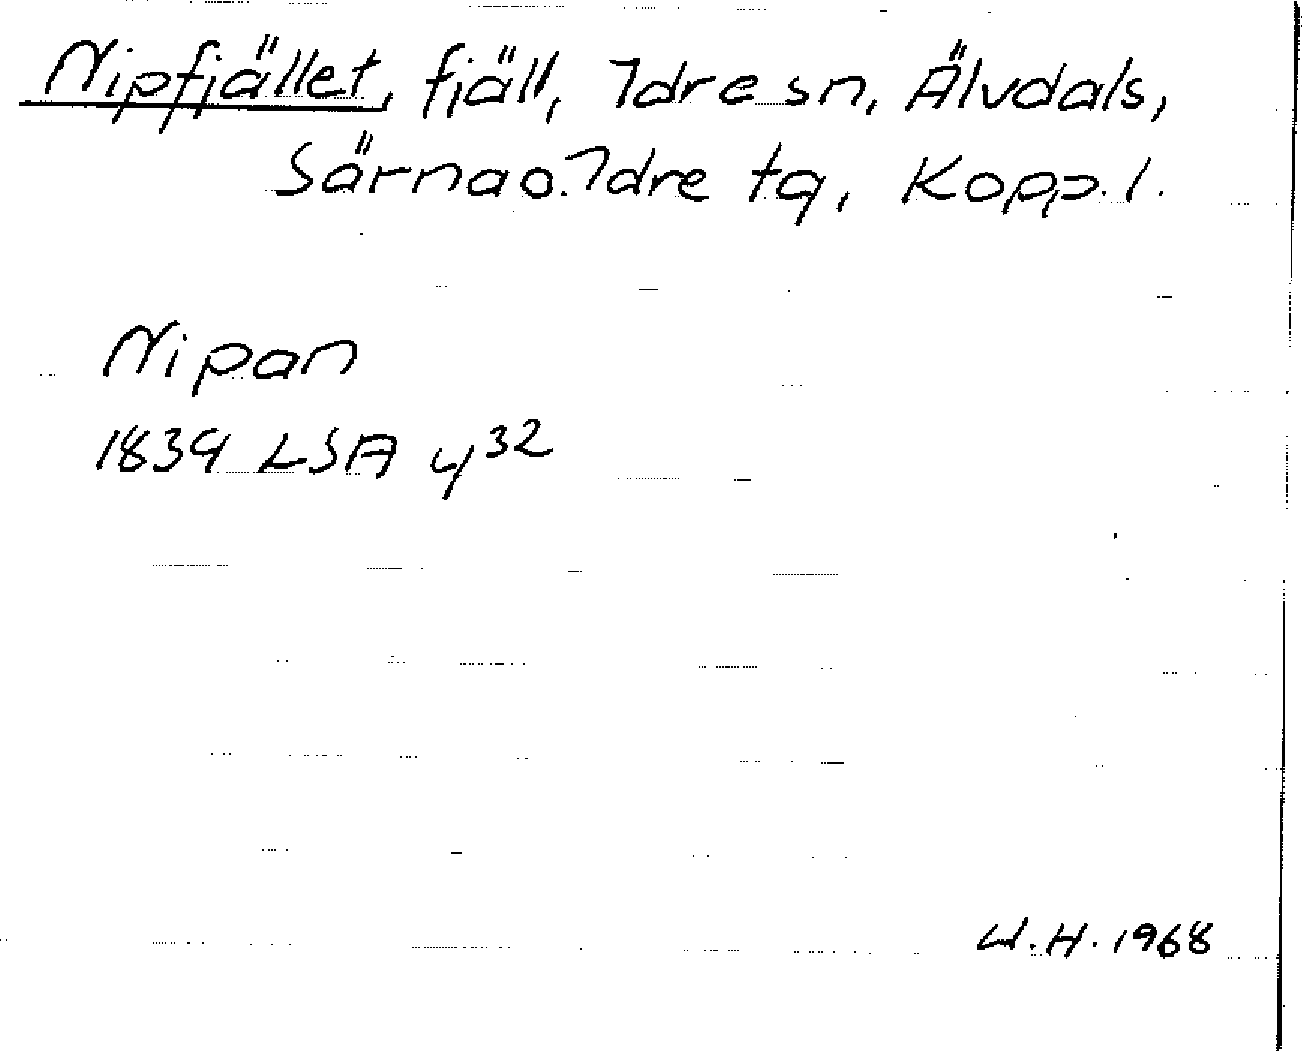 Nipfjället, fjäll, Idre sn, Älvdals,
Särna o. Idre tg, Kopp. l.
Nipan
1839 LSA y32
W.H. 1968